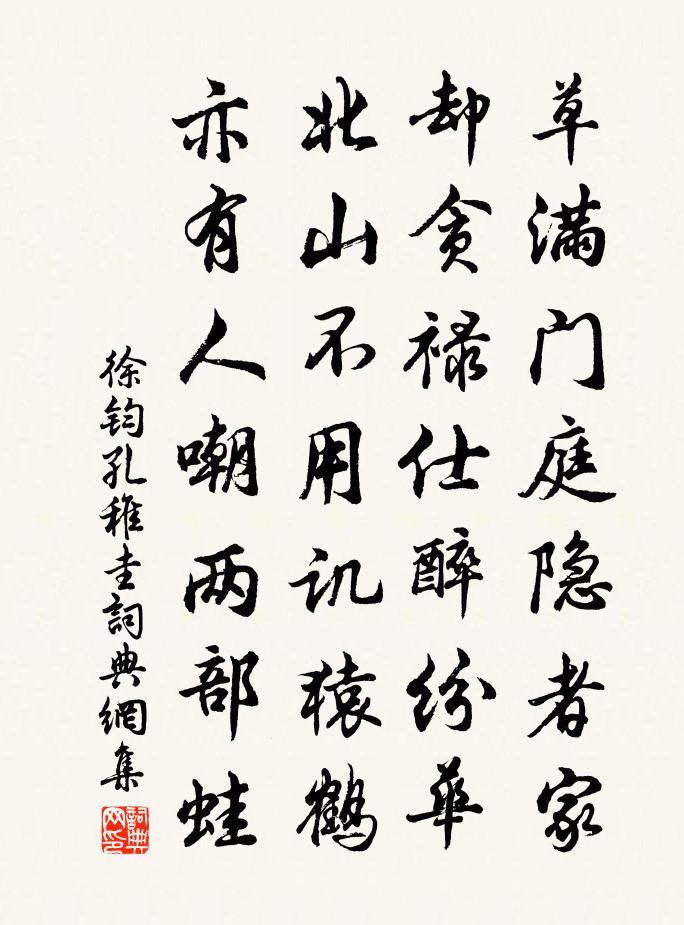 草满门庭隐者家
却贪禄仕醉纷华
北山不用讥猿鹤
亦有人嘲两部蛙
徐钧孔稚圭詞典網集
詞典
网印